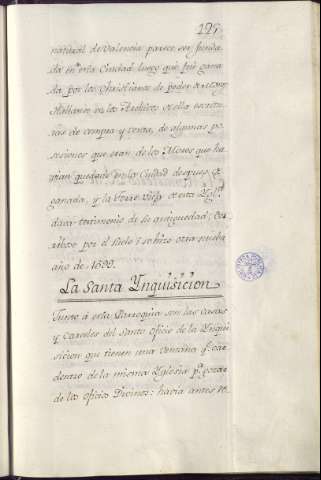 125
natural de Valencia parece ser funda
da en esta Ciudad luego que fué gana
da por los Christianos de poder de Moros
Hallanse en los Archivos de ella escritu
ras de compra y venta, de algunas po
sesiones que eran de los Moros que ha
vian quedado en la Ciudad despues de
ganada, y la Torre vieja de esta Yglª
dava testimonio de su antiguedad; der
ribose por el suelo i se hizo otra nueba
año de 1599.
La Santa Ynquisicion
Junto á esta Parroquia son las casas
y Carceles del Santo Oficio de la Ynqui
sicion que tienen una ventana qe cae
dentro de la misma Yglesia pª gozar
de los oficios Divinos: havia antes Re